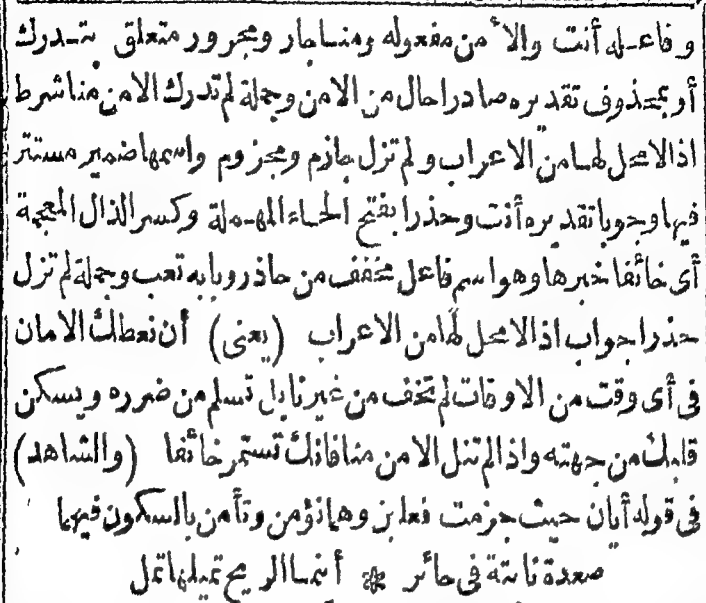 وفاعله أنت والامن مفعوله ومنا جار ومجرور متعلق بتدرك
أو بمحذوف تقديره صادرا حال من الامن وجملة لم تدرك الامن منا شرط
اذا لا محل لها من الاعراب ولم تزل جازم ومجزوم واسمها ضمير مستتر
فيها وجوبا تقديره أنت وحذرا بفتح الحاء المهملة وكسر الذال المعجمة
أى خائفا خبرها وهو اسم فاعل مخفف من حاذر وبابه تعب وجملة لم تزل
حذرا جواب اذا لا محل لها من الاعراب (يعنى) أن نعطك الامان
فى أى وقت من الاوقات لم تخف من غيرنا بل تسلم من ضرره ويسكن
قلبك من جهته واذا لم تنل الامن منا فانك تستمر خائفا (والشاهد)
فى قوله أيان حيث جزمت فعلين وهما نؤمن وتأمن بالسكون فيهما
صعدة نابتة فى حائر * أينما الريح تميلها تمل